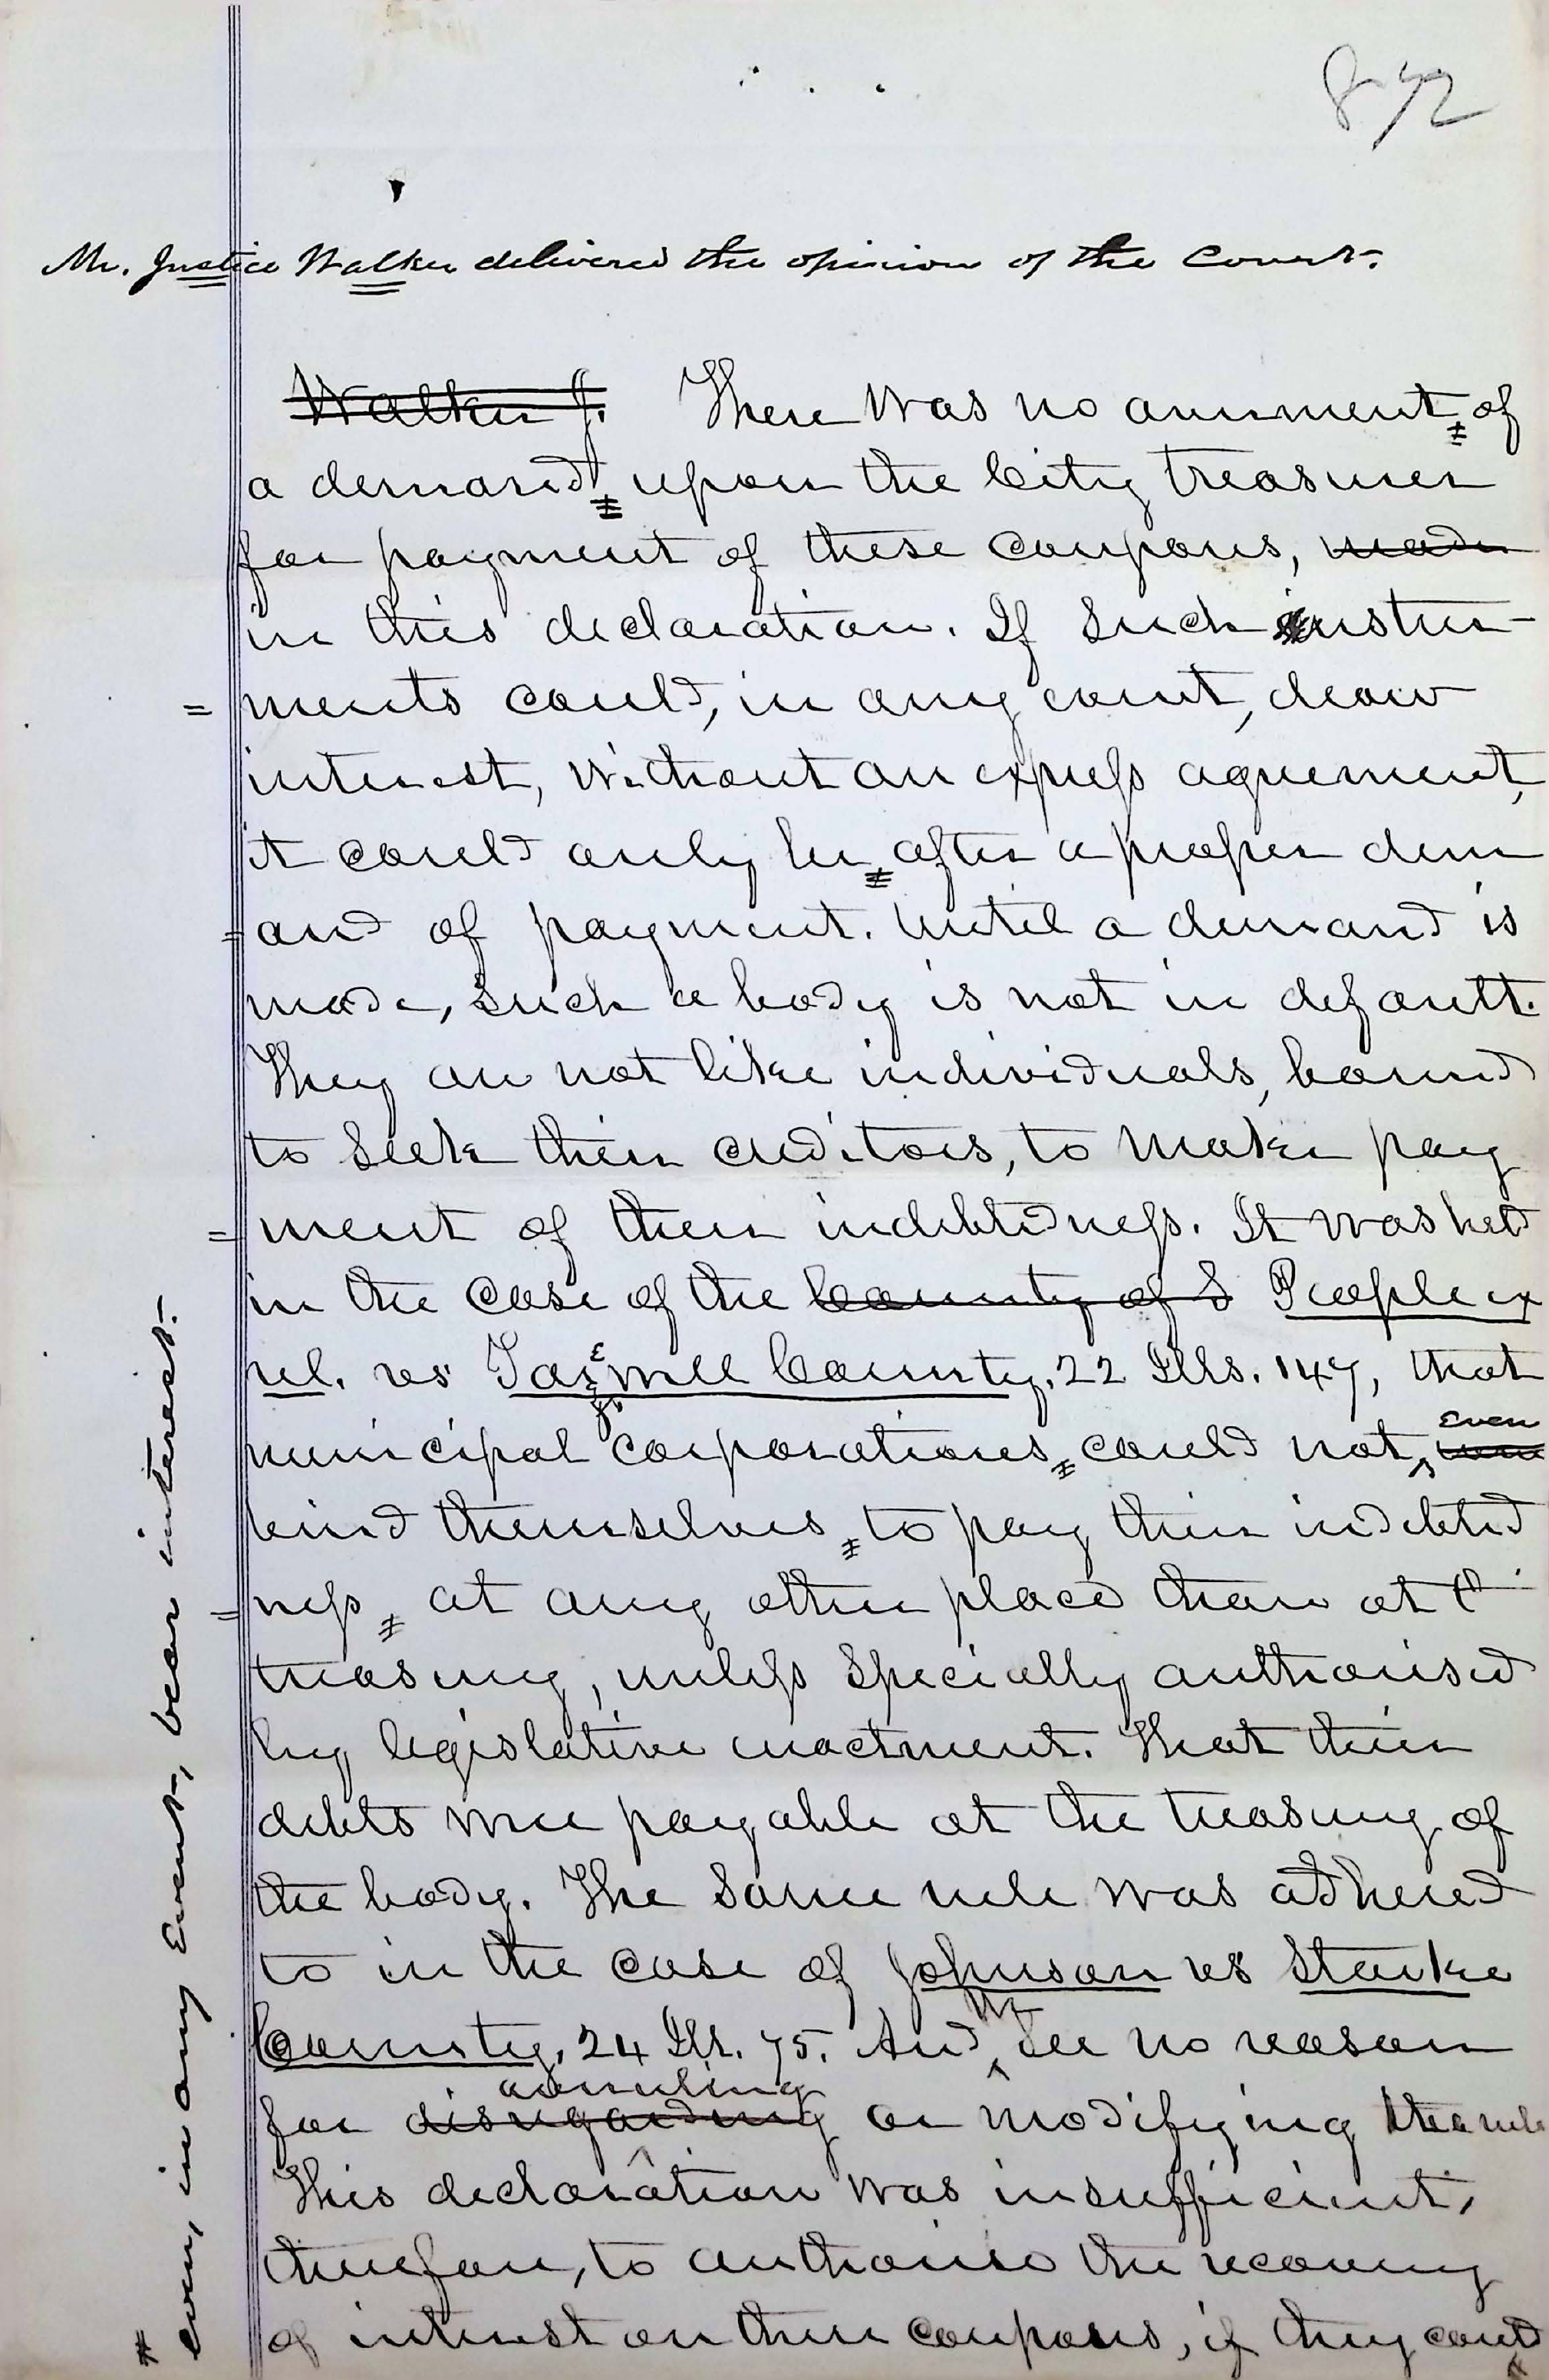 872
Mr. Justice Walker delivered the opinion of the Court.
Walker J. There was no averment of
a demand upon the City treasurer
for payment of these coupons, made
in this declaration. If such instru-
ments could, in any event, draw
interest, without an express agreement,
it could only be after a proper dem
and of payment. Until a demand is
made, such a body is not in default.
They are not like individuals, bound
to seek their creditors, to make pay
ment of their indebtedness. It was held
in the case of the County of S People ex
rel. vs Tazewell County, 22 Ills. 147, that
municipal corporations could not, even
bind themselves to pay their indebted
ness at any other place than at the
treasury, unless specially authorised
by legislative enactment. That their
debts were payable at the treasury of
the body. The same rule was adhered
to in the case of Johnson vs Starke
County, 24 Ill. 75. And we see no reason
for disregarding overruling or modifying the rule
This declaration was insufficient,
therefore, to authorise the recovery
of interest on these coupons, if they could
# even, in any Event, bear interest.